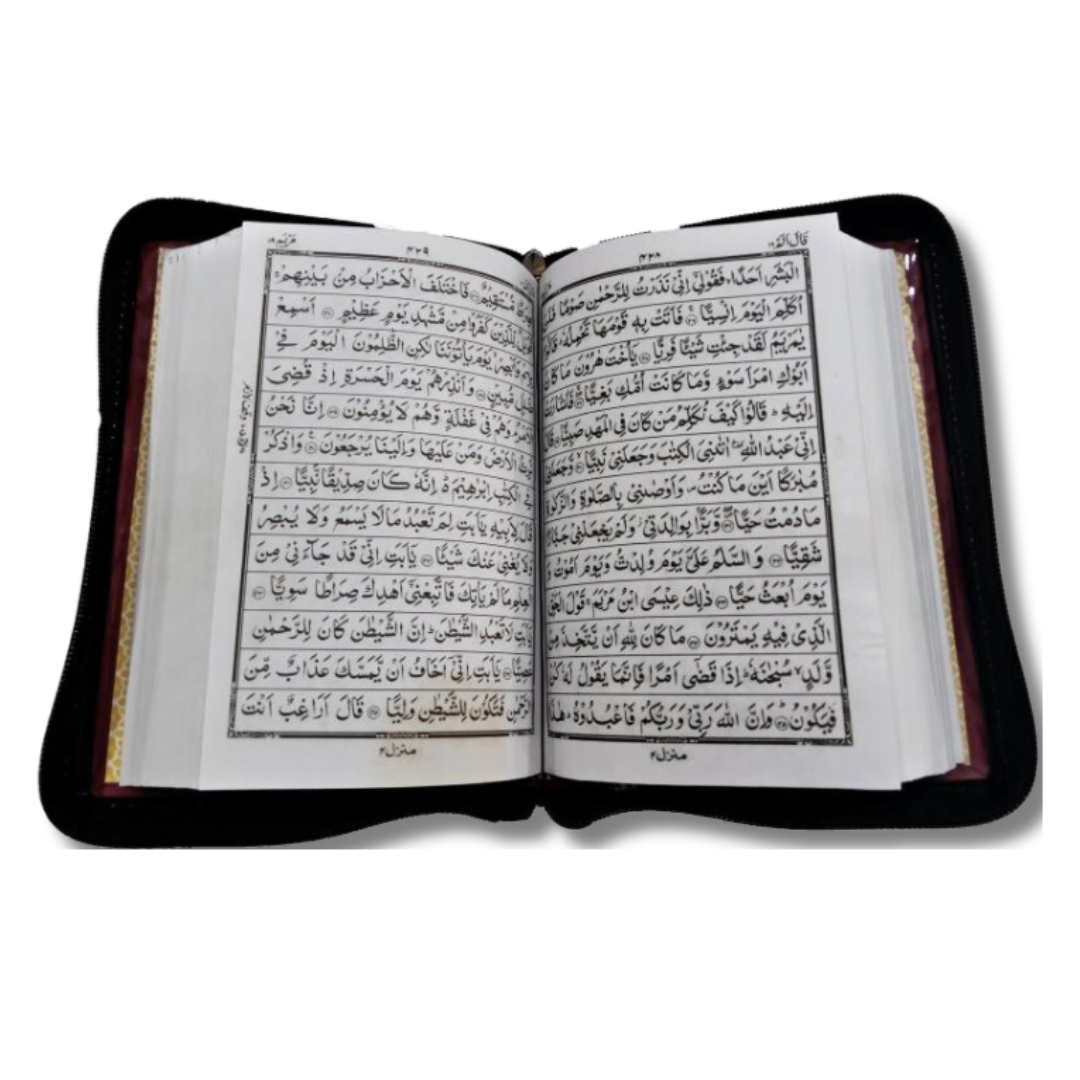 قَالَ اَلَمْ ۱۶
۴۲۸
الْبَشَرِ اَحَدًا ۙ فَقُوْلِيْٓ اِنِّيْ نَذَرْتُ لِلرَّحْمٰنِ صَوْمًا
اُكَلِّمَ الْيَوْمَ اِنْسِيًّا ﴿۲۶﴾ فَاَتَتْ بِهٖ قَوْمَهَا تَحْمِلُهٗ ؕ
يٰمَرْيَمُ لَقَدْ جِئْتِ شَيْئًا فَرِيًّا ﴿۲۷﴾ يٰٓاُخْتَ هٰرُوْنَ مَا كَانَ
اَبُوْكِ امْرَاَ سَوْءٍ وَّمَا كَانَتْ اُمُّكِ بَغِيًّا ﴿۲۸﴾ فَاَشَارَتْ
اِلَيْهِ ؕ قَالُوْا كَيْفَ نُكَلِّمُ مَنْ كَانَ فِي الْمَهْدِ صَبِيًّا ﴿۲۹﴾ قَالَ
اِنِّيْ عَبْدُ اللّٰهِ ؕ اٰتٰىنِيَ الْكِتٰبَ وَجَعَلَنِيْ نَبِيًّا ﴿۳۰﴾ وَّجَعَلَنِيْ
مُبٰرَكًا اَيْنَ مَا كُنْتُ ۪ وَاَوْصٰنِيْ بِالصَّلٰوةِ وَالزَّكٰوةِ
مَا دُمْتُ حَيًّا ﴿۳۱﴾ وَّبَرًّۢا بِوَالِدَتِيْ ۫ وَلَمْ يَجْعَلْنِيْ جَبَّارًا
شَقِيًّا ﴿۳۲﴾ وَالسَّلٰمُ عَلَيَّ يَوْمَ وُلِدْتُّ وَيَوْمَ اَمُوْتُ وَ
يَوْمَ اُبْعَثُ حَيًّا ﴿۳۳﴾ ذٰلِكَ عِيْسَى ابْنُ مَرْيَمَ ۚ قَوْلَ الْحَقِّ
الَّذِيْ فِيْهِ يَمْتَرُوْنَ ﴿۳۴﴾ مَا كَانَ لِلّٰهِ اَنْ يَّتَّخِذَ مِنْ
وَّلَدٍ ۙ سُبْحٰنَهٗ ؕ اِذَا قَضٰٓى اَمْرًا فَاِنَّمَا يَقُوْلُ لَهٗ كُنْ
فَيَكُوْنُ ﴿۳۵﴾ وَاِنَّ اللّٰهَ رَبِّيْ وَرَبُّكُمْ فَاعْبُدُوْهُ ؕ هٰذَا
منزل ۴
مَرْيَم ۱۹
۴۲۹
مُّسْتَقِيْمٌ ﴿۳۶﴾ فَاخْتَلَفَ الْاَحْزَابُ مِنْۢ بَيْنِهِمْ ۚ
لِّلَّذِيْنَ كَفَرُوْا مِنْ مَّشْهَدِ يَوْمٍ عَظِيْمٍ ﴿۳۷﴾ اَسْمِعْ
وَاَبْصِرْ ۙ يَوْمَ يَاْتُوْنَنَا لٰكِنِ الظّٰلِمُوْنَ الْيَوْمَ فِيْ
ضَلٰلٍ مُّبِيْنٍ ﴿۳۸﴾ وَاَنْذِرْهُمْ يَوْمَ الْحَسْرَةِ اِذْ قُضِيَ
الْاَمْرُ ۘ وَهُمْ فِيْ غَفْلَةٍ وَّهُمْ لَا يُؤْمِنُوْنَ ﴿۳۹﴾ اِنَّا نَحْنُ
نَرِثُ الْاَرْضَ وَمَنْ عَلَيْهَا وَاِلَيْنَا يُرْجَعُوْنَ ﴿۴۰﴾ وَاذْكُرْ
فِي الْكِتٰبِ اِبْرٰهِيْمَ ۬ؕ اِنَّهٗ كَانَ صِدِّيْقًا نَّبِيًّا ﴿۴۱﴾ اِذْ
قَالَ لِاَبِيْهِ يٰٓاَبَتِ لِمَ تَعْبُدُ مَا لَا يَسْمَعُ وَلَا يُبْصِرُ
وَلَا يُغْنِيْ عَنْكَ شَيْئًا ﴿۴۲﴾ يٰٓاَبَتِ اِنِّيْ قَدْ جَآءَنِيْ مِنَ
الْعِلْمِ مَا لَمْ يَاْتِكَ فَاتَّبِعْنِيْٓ اَهْدِكَ صِرَاطًا سَوِيًّا ﴿۴۳﴾
يٰٓاَبَتِ لَا تَعْبُدِ الشَّيْطٰنَ ؕ اِنَّ الشَّيْطٰنَ كَانَ لِلرَّحْمٰنِ
عَصِيًّا ﴿۴۴﴾ يٰٓاَبَتِ اِنِّيْٓ اَخَافُ اَنْ يَّمَسَّكَ عَذَابٌ مِّنَ
الرَّحْمٰنِ فَتَكُوْنَ لِلشَّيْطٰنِ وَلِيًّا ﴿۴۵﴾ قَالَ اَرَاغِبٌ اَنْتَ
منزل ۴